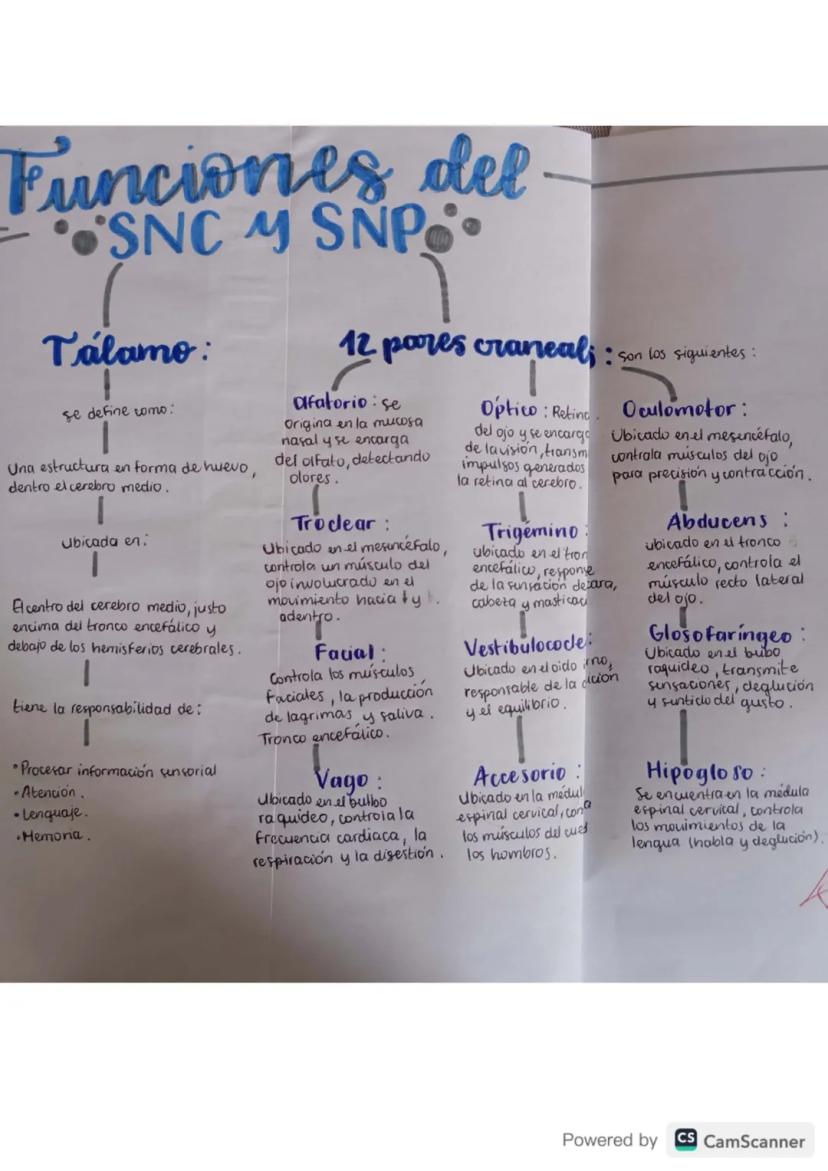 Funciones del
SNC y SNP
Tálamo:
se define como:
Una estructura en forma de huevo,
dentro el cerebro medio.
Ubicada en:
El centro del cerebro medio, justo
encima del tronco encefálico y
debajo de los hemisferios cerebrales.
tiene la responsabilidad de:
•Procesar información sensorial
•Atención.
•Lenguaje.
•Memoria.
12 pares craneal : son los siguientes:
Olfatorio: se
origina en la mucosa
nasal y se encarga
del olfato, detectando
olores.
Troclear:
Ubicado en el mesencéfalo,
controla un músculo del
ojo involucrado en el
movimiento hacia ↓ y
adentro.
Facial:
Controla los músculos
faciales, la producción
de lagrimas y saliva.
Tronco encefálico.
Vago:
Ubicado en el bulbo
raquideo, controla la
frecuencia cardiaca, la
respiración y la digestión.
Óptico: Retina
del ojo y se encarga
de la visión, transm
impulsos generados
la retina al cerebro.
Trigémino:
ubicado en el tron
encefálico, respons
de la sensación de cara,
cabeza y masticac
Vestibulococle:
Ubicado en el oido rno,
responsable de la dición
y el equilibrio.
Accesorio:
Ubicado en la médul
espinal cervical, con
los músculos del cue
los hombros.
Oculomotor:
Ubicado en el mesencéfalo,
controla músculos del ojo
para precisión y contracción.
Abducens:
ubicado en el tronco
encefálico, controla el
músculo recto lateral
del ojo.
Glosofaríngeo:
Ubicado en el bubo
raquideo, transmite
sensaciones, deglución
y sentido del gusto.
Hipogloso:
Se encuentra en la médula
espinal cervical, controla
los movimientos de la
lengua (habla y deglución).
Powered by CS CamScanner